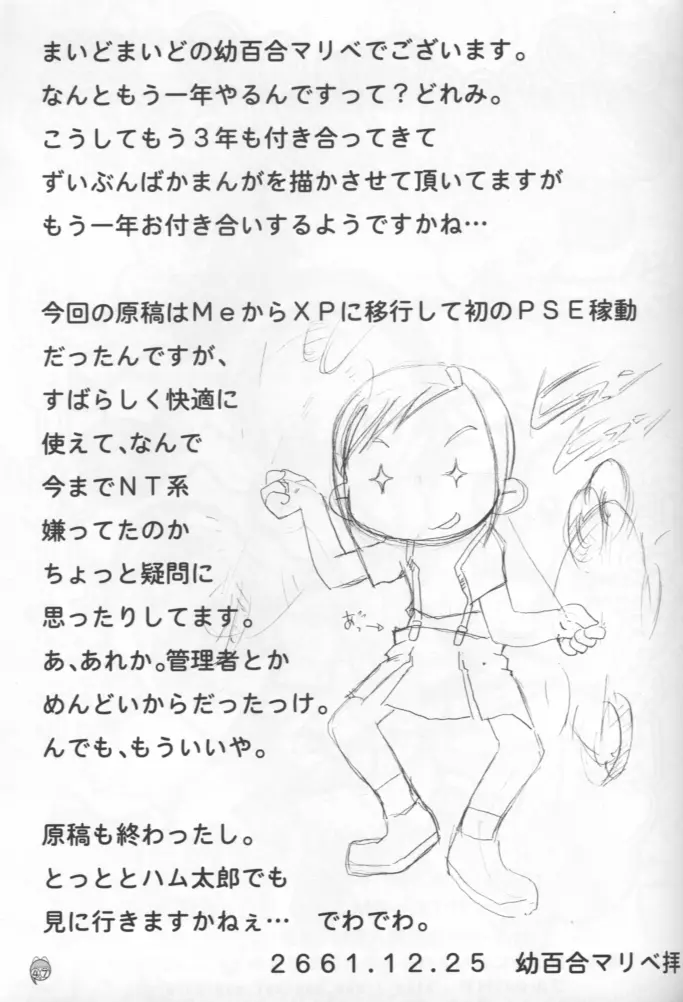 まいどまいどの幼百合マリベでございます。
なんともう一年やるんですって？どれみ。
こうしてもう３年も付き合ってきて
ずいぶんばかまんがを描かさせて頂いてますが
もう一年お付き合いするようですかね…
今回の原稿はＭｅからＸＰに移行して初のＰＳＥ稼動
だったんですが、
すばらしく快適に
使えて、なんで
今までＮＴ系
嫌ってたのか
ちょっと疑問に
思ったりしてます。
あ、あれか。管理者とか
めんどいからだったっけ。
んでも、もういいや。
あっ→
原稿も終わったし。
とっととハム太郎でも
見に行きますかねぇ…　でわでわ。
２６６１．１２．２５　幼百合マリベ拝